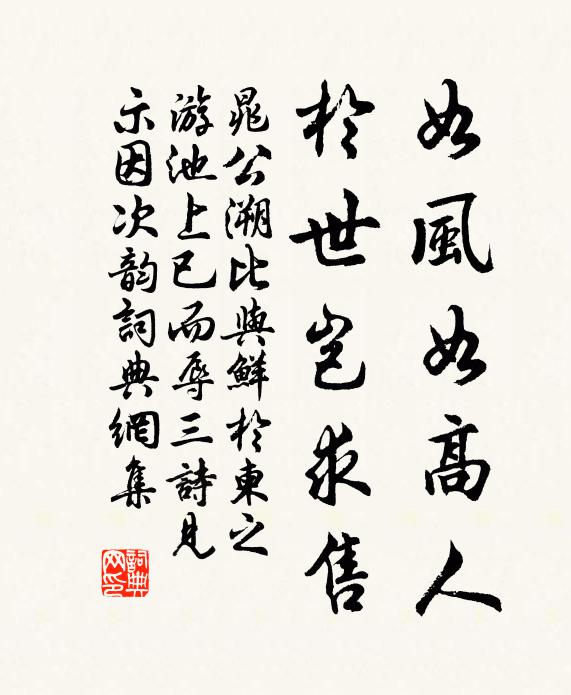 如風如高人
於世豈求售
晁公溯比與鮮於東之
游池上已而辱三詩見
示因次韵詞典網集
詞典網印